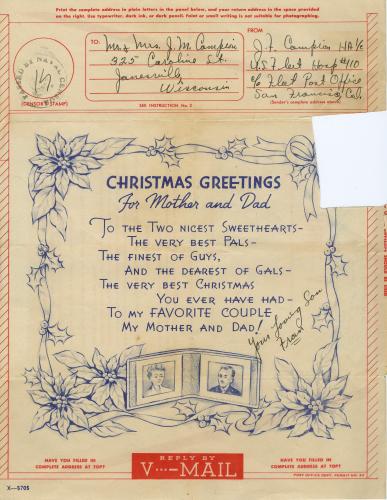 Print the complete address in plain letters in the panel below, and your return address in the space provided
on the right. Use typewriter, dark ink, or dark pencil. Faint or small writing is not suitable for photographing.
TO:
Mr & Mrs. J. M. Campion
325 Caroline St.
Janesville
Wisconsin
FROM
J. F. Campion HA 1/c
US Fleet Hosp #110
c/o Fleet Post Office
San Francisco, Cal.
(Sender's complete address above)
PASSED BY NAVAL CENSOR
(CENSOR'S STAMP)
SEE INSTRUCTION NO. 2
CHRISTMAS GREETINGS
For Mother and Dad
TO THE TWO NICEST SWEETHEARTS-
THE VERY BEST PALS-
THE FINEST OF GUYS,
AND THE DEAREST OF GALS-
THE VERY BEST CHRISTMAS
YOU EVER HAVE HAD-
TO MY FAVORITE COUPLE
MY MOTHER AND DAD!
Your Loving Son
Fran
HAVE YOU FILLED IN
COMPLETE ADDRESS AT TOP?
REPLY BY
V···—MAIL
HAVE YOU FILLED IN
COMPLETE ADDRESS AT TOP?
X-5705
POST OFFICE DEPT. PERMIT NO.